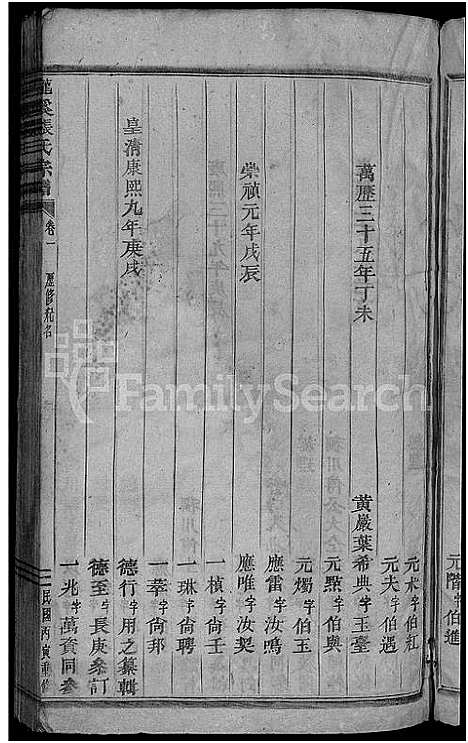 元階字伯進
元木字伯紅
元夫字伯遇
萬歷三十五年丁未
黃嚴葉希典字玉臺
元點字伯與
元燭字伯玉
應雷字汝鳴
崇禎元年戊辰
應唯字汝契
一楨字尙壬
一琳字尙聘
一萃字尙邦
皇清康熙九年庚戌
德行字用之纂輯
德至字長庚叅訂
一兆字萬資同參
張氏宗譜 卷一 歷修名 民國丙寅重修
FamilySearch